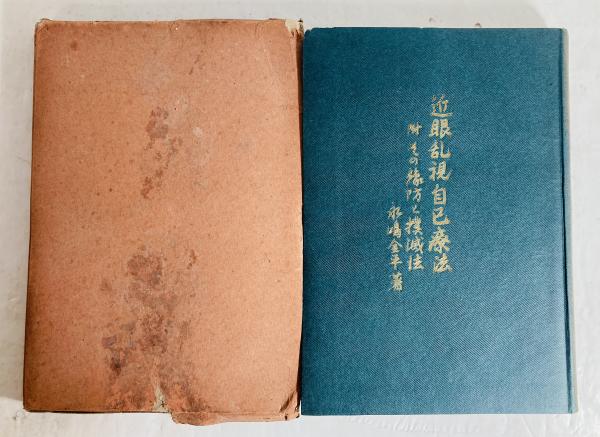 近眼乱視自己療法
附 その予防と撲滅法
永嶋金平著